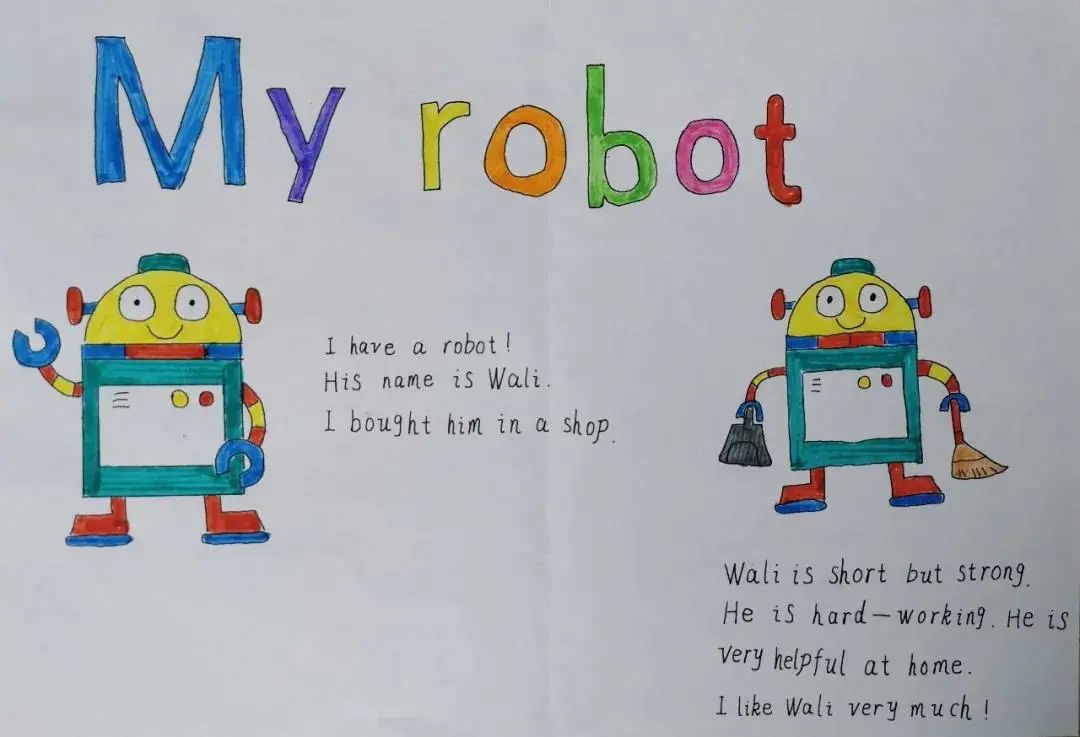 My robot
I have a robot!
His name is Wali.
I bought him in a shop.
Wali is short but strong.
He is hard-working. He is
very helpful at home.
I like Wali very much!